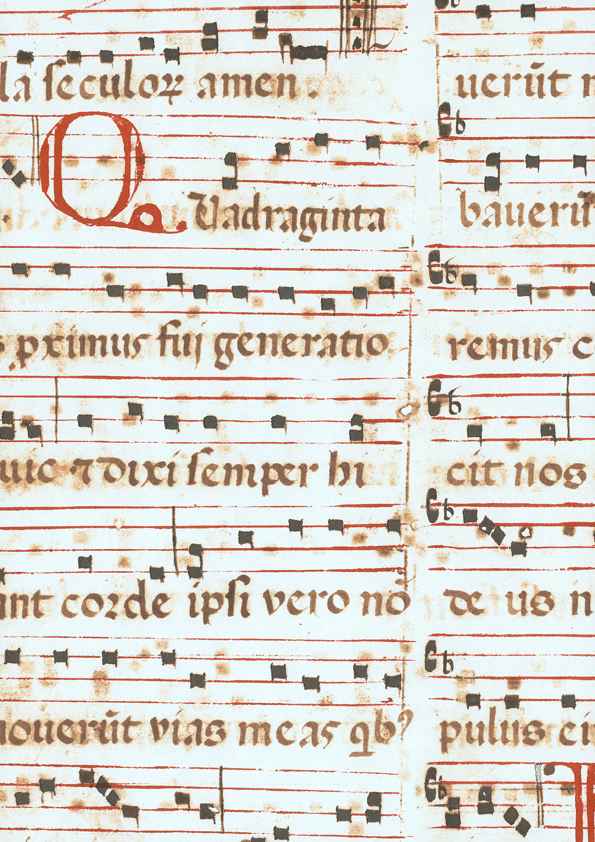 la seculoꝝ amen.
QVadraginta
s ꝓximus fui generatio
uic ⁊ dixi semper hi
unt corde ipsi vero nō
nouerūt vias meas qb⁹
uerūt n
bauerū
remus c
cit nos
de us n
pulus ei